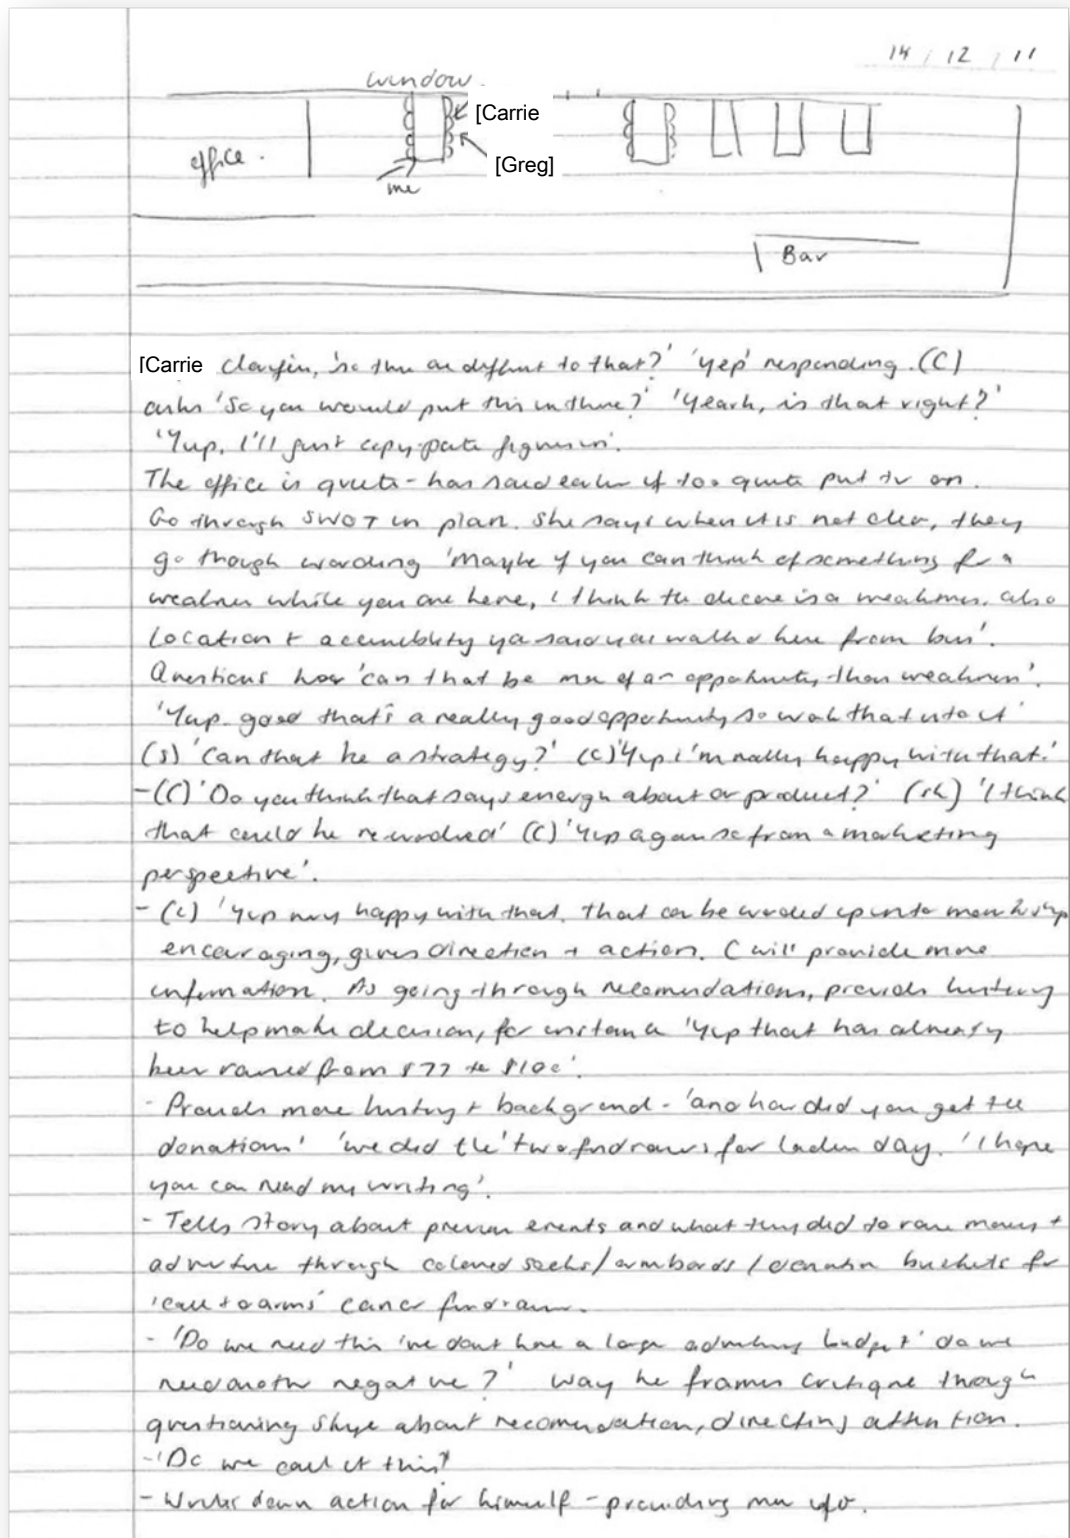 14 / 12 / 11
window.
[Carrie
office.
[Greg]
me
Bar
[Carrie clarifies, 'so this are different to that?' 'yep' responding. (C)
asks 'So you would put this in there?' 'Yearh, is that right?'
'Yup, I'll just copy-paste figures in'.
The office is quite - has said earlier if too quite put tv on.
Go through SWOT in plan. She says when it is not clear, they
go though wording 'Maybe if you can think of something for a
weakness while you are here, I think the decore is a weakness, also
location + accessibility ya said you walked here from bus'.
Questions how 'can that be more of an opportunity than weakness'.
'Yup - good that's a really good opportunity so work that into it'
(S) 'Can that be a strategy?' (C) 'Yup I'm really happy with that.'
- (C) 'Do you think that says enough about or product?' (sk) 'I think
that could be reworked' (C) 'Yup again so from a marketing
perspective'.
- (C) 'Yup very happy with that. That can be worded up into membership
encouraging, gives direction + action. C will provide more
information. As going through recomendations, provides history
to help make decision, for instance 'Yup that has already
been raised from $77 to $100'.
- Provides more history + background - 'and how did you get the
donations' 'we did the two fundraisers for ladies day. 'I hope
you can read my writing'.
- Tells story about previous events and what they did to raise money +
advertise through colored socks/armbands/donation buckets for
'call to arms' cancer fundraiser.
- 'Do we need this 'we dont have a large advertising budget' do we
need another negative?' Way he frames critique through
questioning Skye about recomendation, directing attention.
- 'Do we call it this?'
- Writes down action for himself - providing more info.